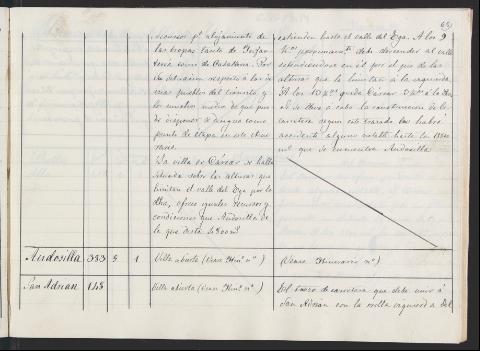 69
recursos pª alojamiento de
las tropas tanto de Infan-
tería como de Caballería. Por
lo
pueblos del tránsito y
los muchos medios de que pue-
de disponer se designa como
punto de etapa en este itine-
rario.
La villa de Cárcar se halla
situada sobre las alturas que
limitan el valle del Ega por la
dha, ofrece iguales recursos y
condiciones que Andosilla de
la que dista 4800 m.
estienden hasta el valle del Ega. A los 9
Kms proximamte debe descender al valle
estendiendose en él por el pie de las
alturas que la limitan á la izquierda.
A los 10 Kms queda Cárcar á la dha,
si se lleva á cabo la construccion de la
carretera segun este trazado no habrá
accidente alguno notable hasta los
ms que se encuentra Andosilla
Andosilla 353 5 1 Villa abierta (Vease Itinº nº ) (Vease Itinerario nº )
San Adrian 148 Villa abierta (Vease Itinº nº ) Del trozo de carretera que debe unir á
San Adrian con la orilla izquierda del